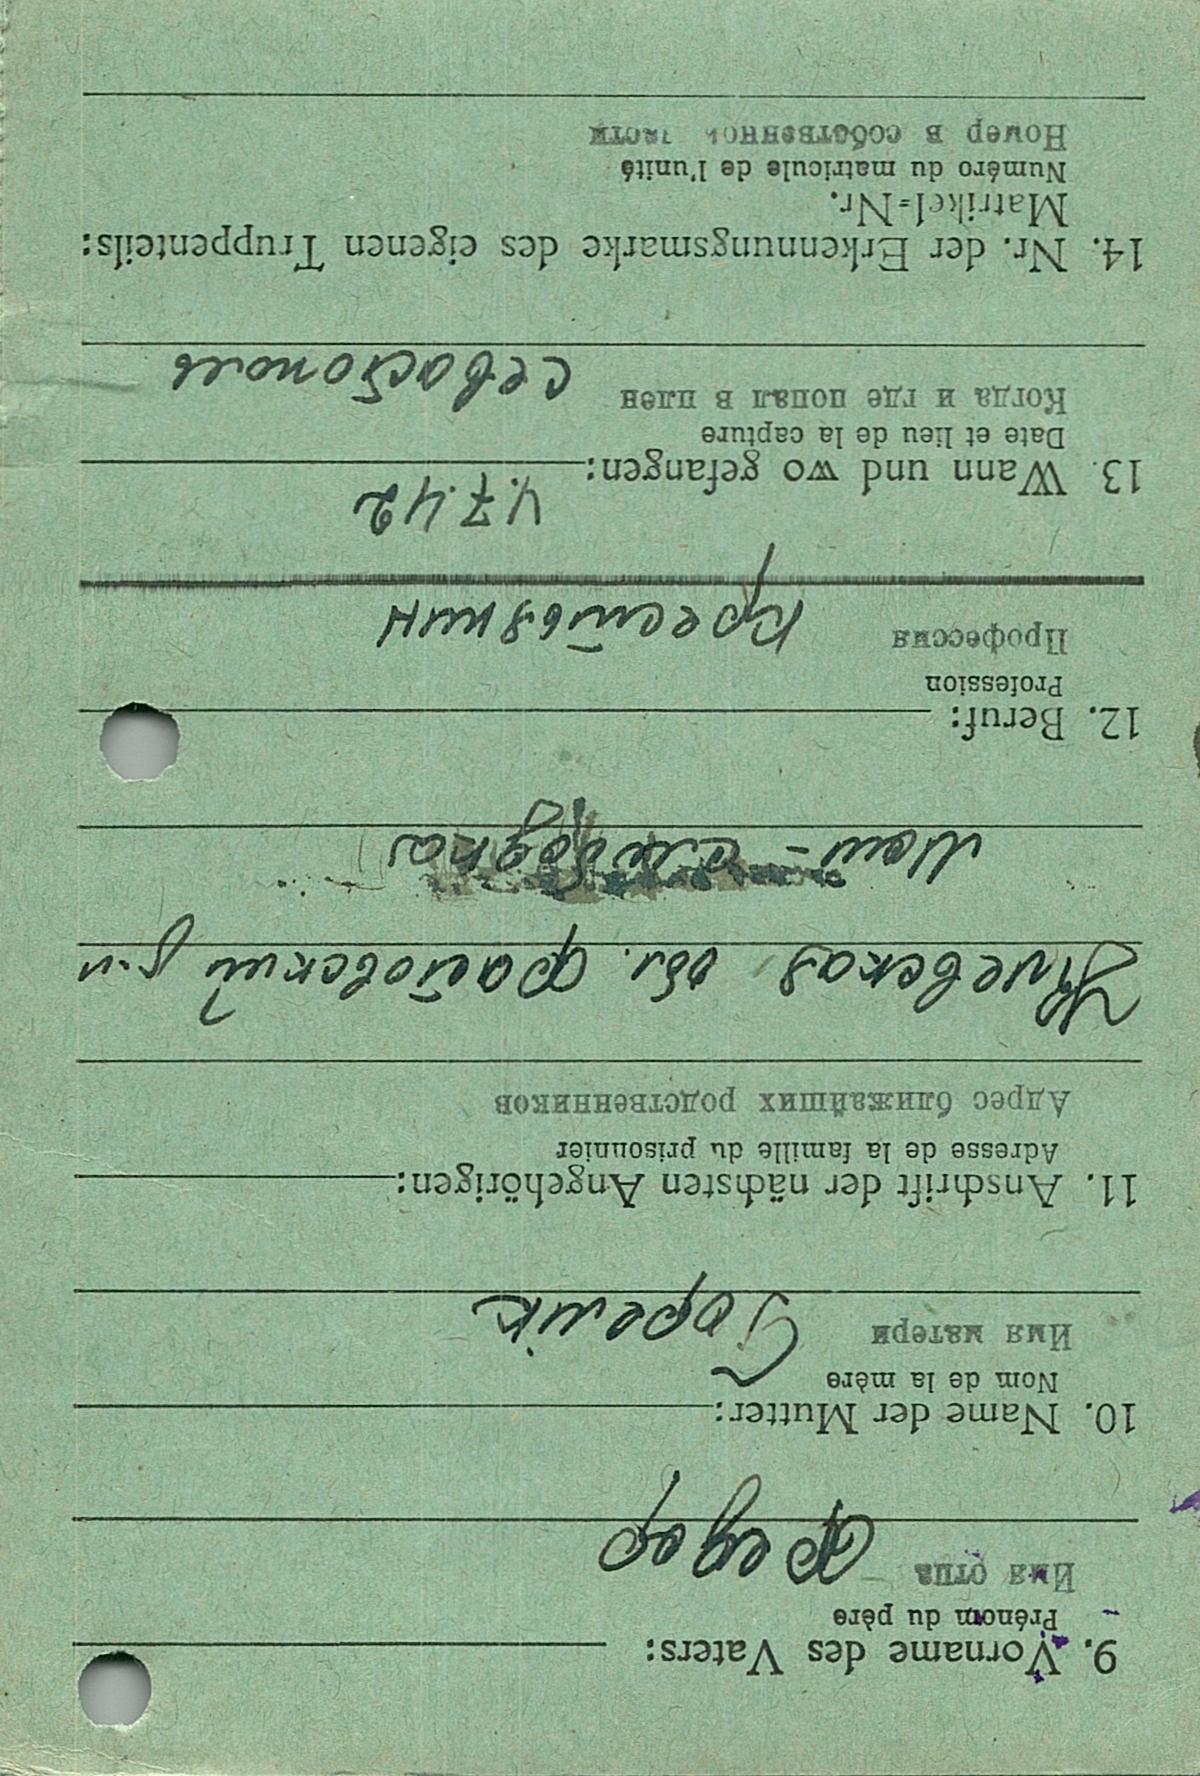 9. Vorname des Vaters:
Prénom du père
Имя отца Федор
10. Name der Mutter:
Nom de la mère
Имя матери
11. Anschrift der nächsten Angehörigen:
Adresse de la famille du prisonnier
Адрес ближайших родственников
Киевская обл. Фастовский р-н
слободка
12. Beruf:
Profession
Профессия крестьянин
4.7.42
13. Wann und wo gefangen:
Date et lieu de la capture
Когда и где попал в плен Севастополь
14. Nr. der Erkennungsmarke des eigenen Truppenteils:
Matrikel=Nr.
Numéro du matricule de l'unité
Номер в собственной части